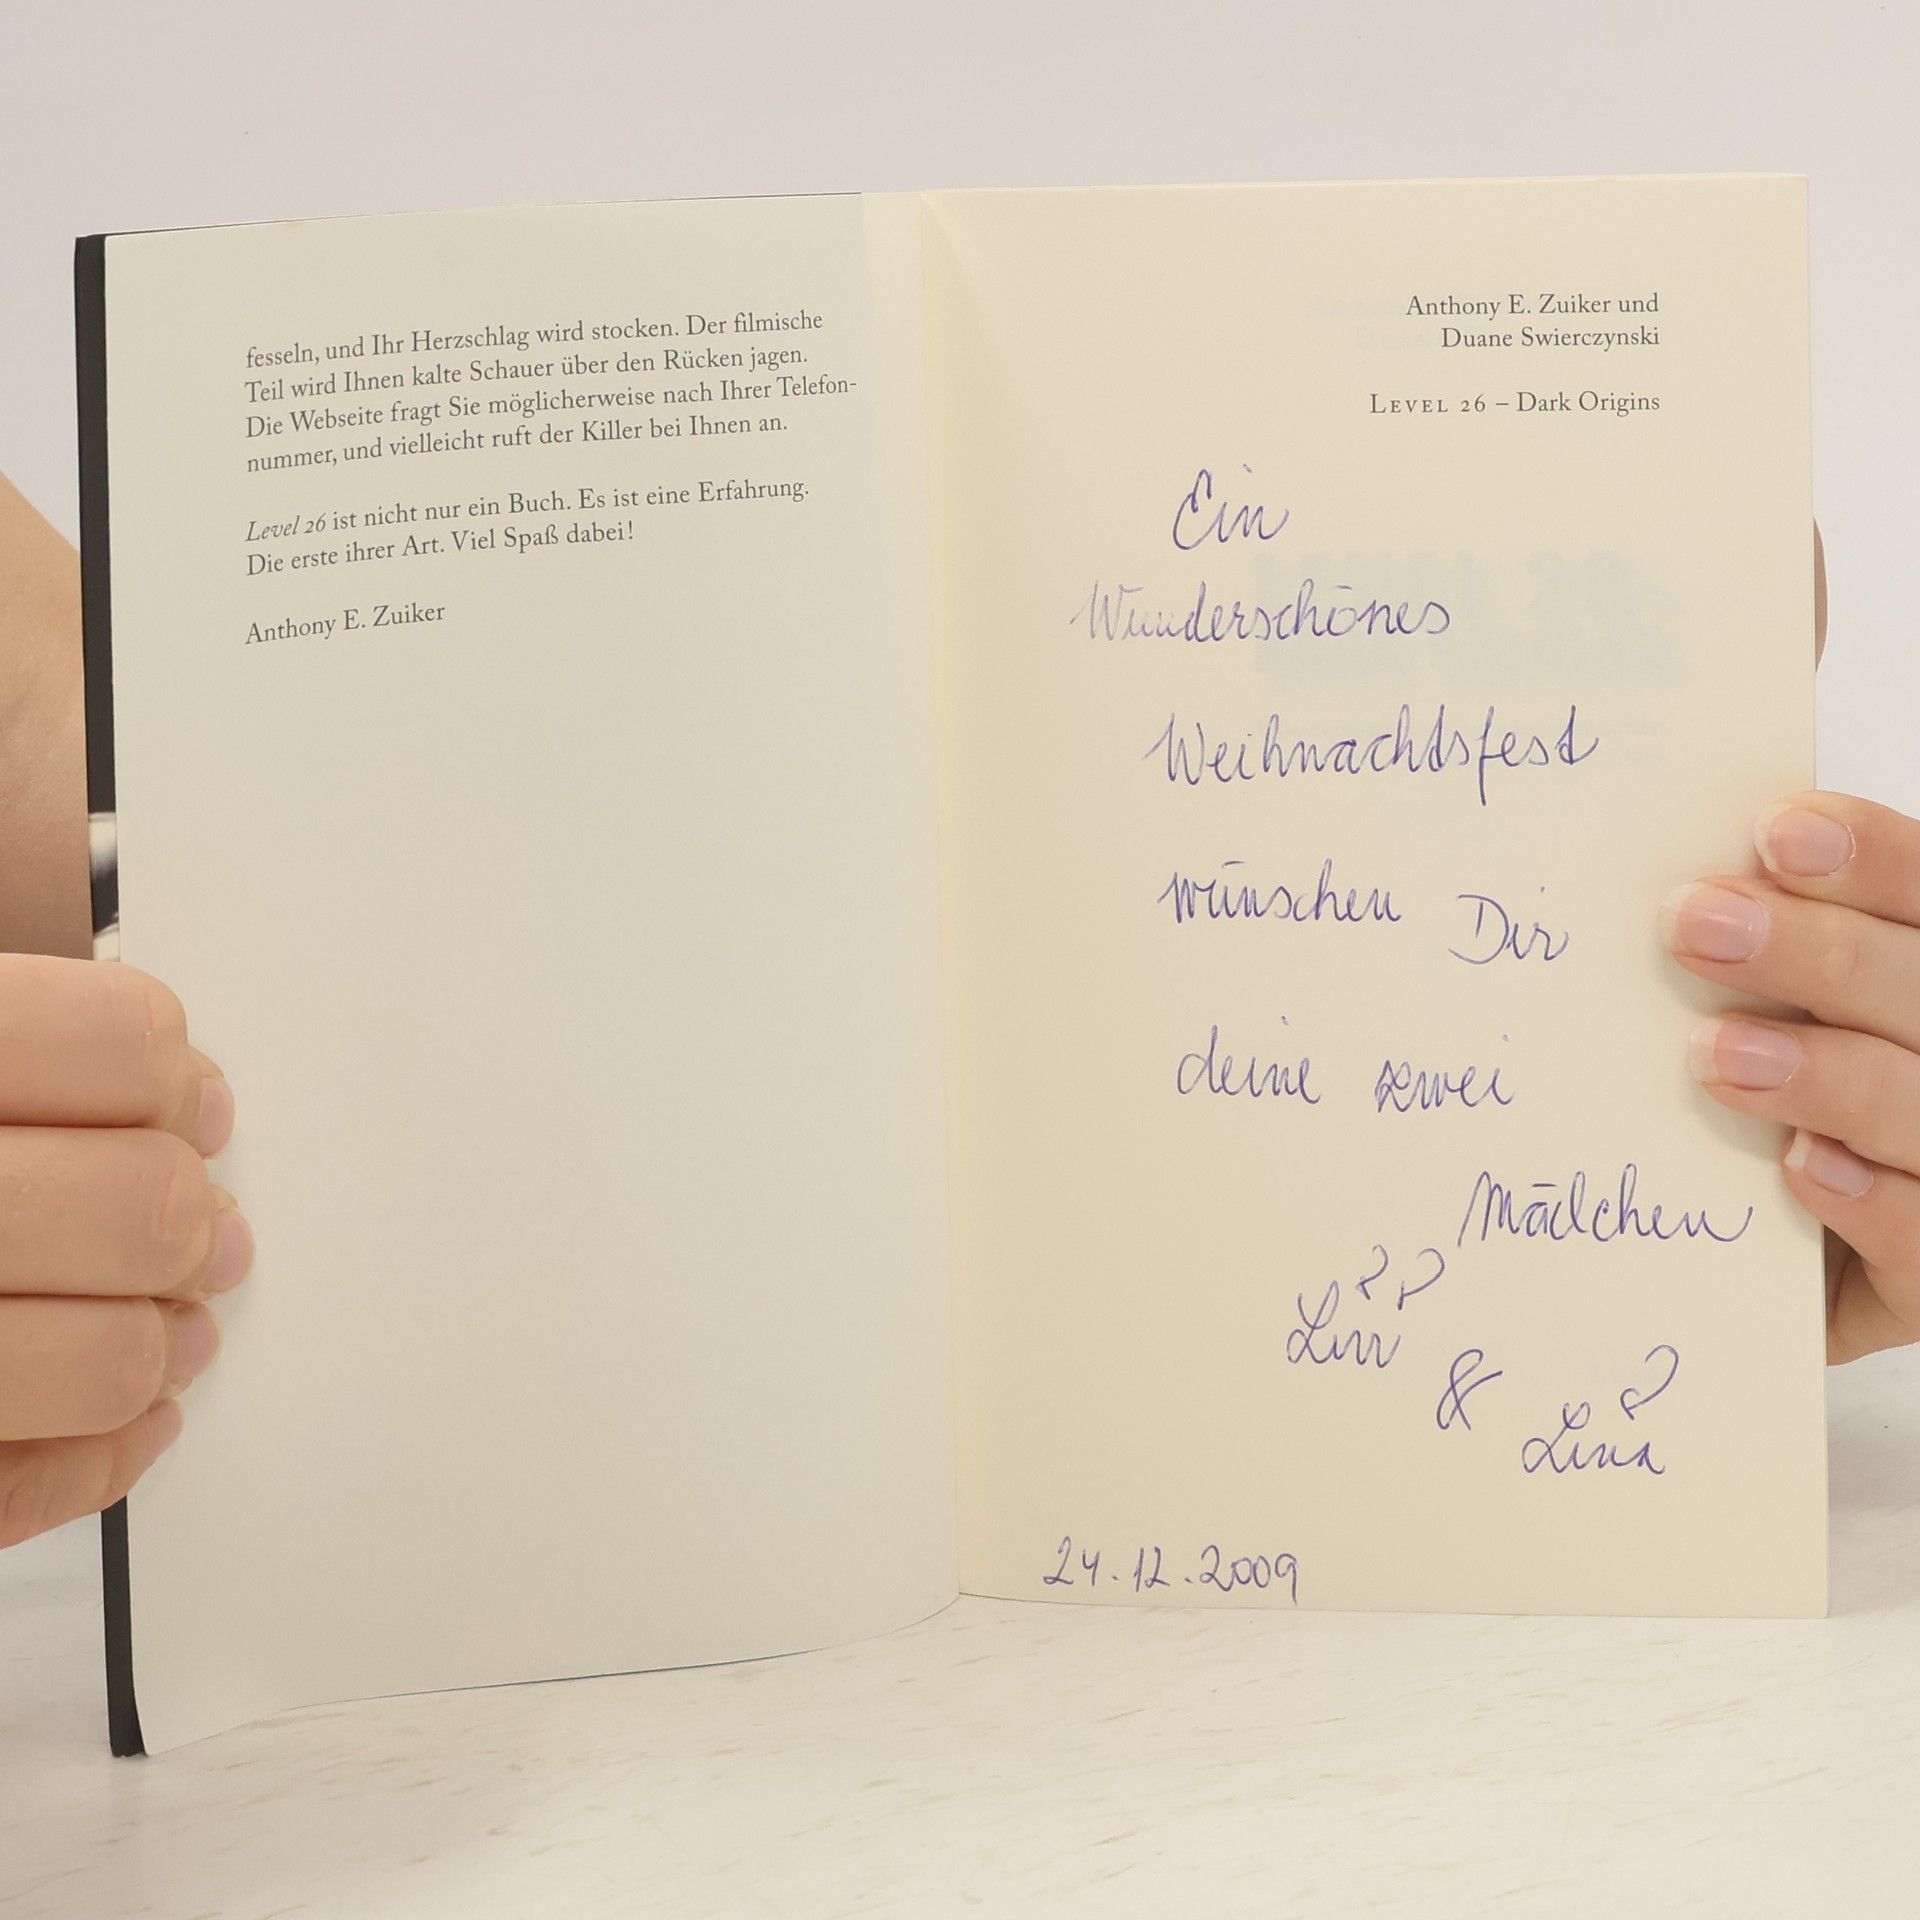 fesseln, und Ihr Herzschlag wird stocken. Der filmische
Teil wird Ihnen kalte Schauer über den Rücken jagen.
Die Webseite fragt Sie möglicherweise nach Ihrer Telefon-
nummer, und vielleicht ruft der Killer bei Ihnen an.
Level 26 ist nicht nur ein Buch. Es ist eine Erfahrung.
Die erste ihrer Art. Viel Spaß dabei!
Anthony E. Zuiker
Anthony E. Zuiker und
Duane Swierczynski
LEVEL 26 – Dark Origins
Ein
Wunderschönes
Weihnachtsfest
wünschen Dir
deine zwei
Mädchen
&
Lina
24.12.2009